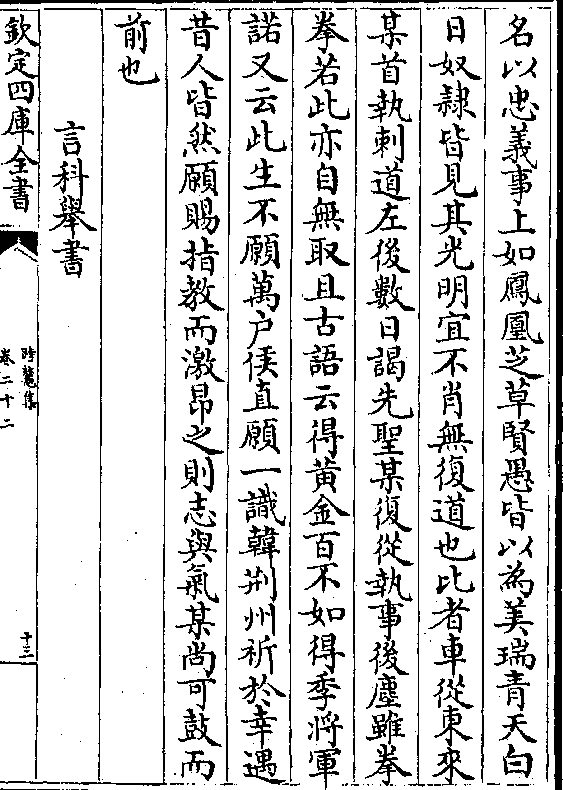 名以忠義事上如鳳凰芝草賢愚皆以為美瑞青天白
日奴隸皆見其光明宜不肖無復道也比者車從東來
某首執刺道左後數日謁先聖某復從執事後塵雖拳
拳若此亦自無取且古語云得黃金百不如得季將軍
諾又云此生不願萬户侯直願一識韓荆州祈於幸遇
昔人皆然願賜指教而激昂之則志與氣某尚可鼓而
前也
言科舉書
欽定四庫全書
時𨗿集
卷二十二
十三